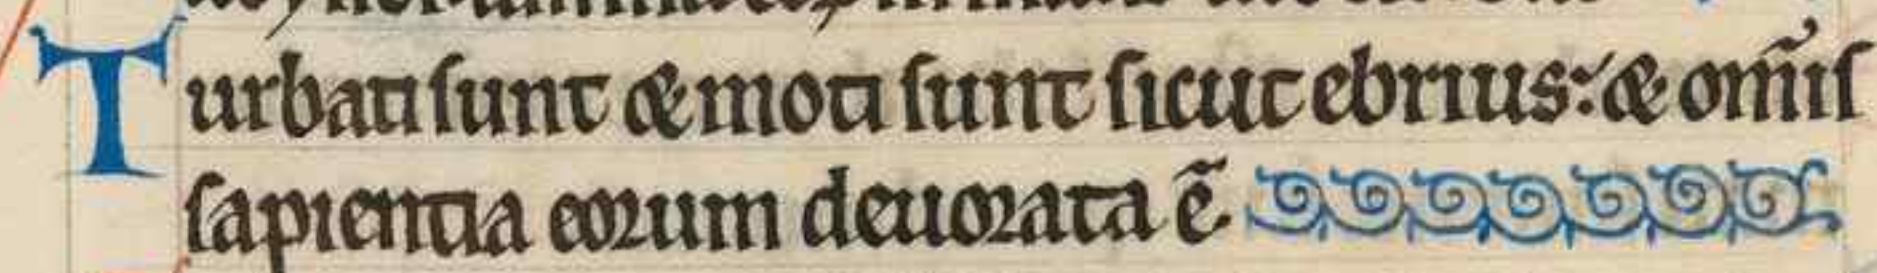 Turbati sunt & moti sunt sicut ebrius: & om̄is
sapientia eorum deuorata ē.